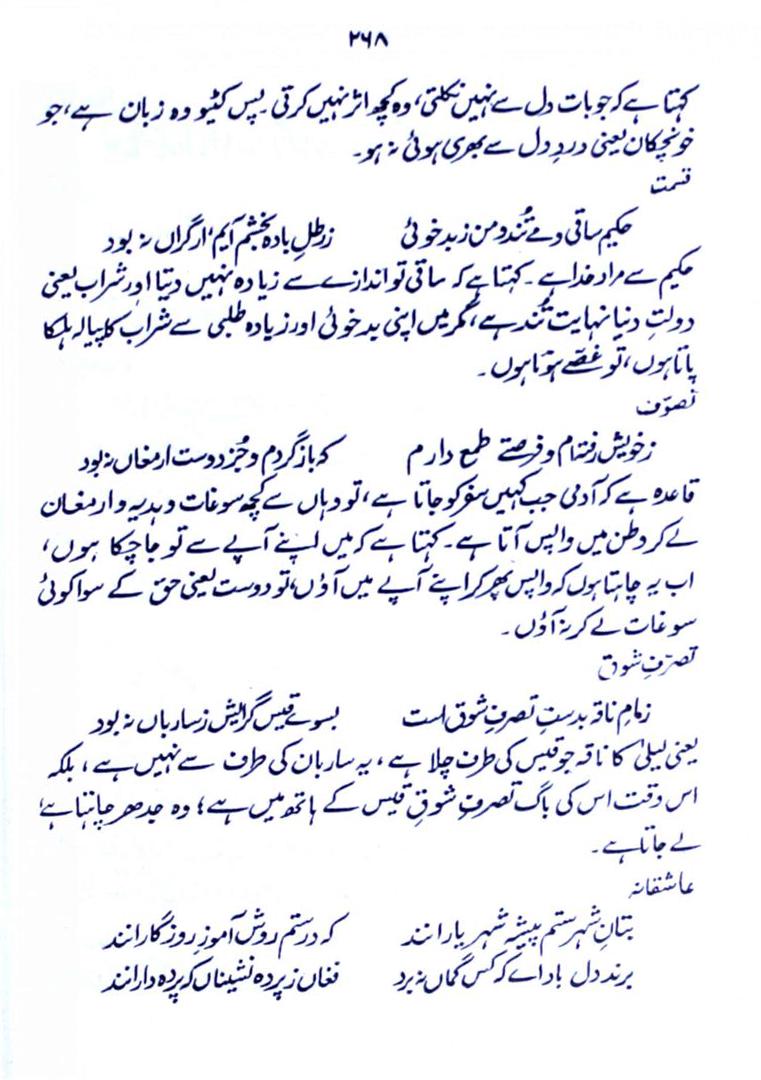 ۲۶۸
کہتا ہے کہ جو بات دل سے نہیں نکلتی، وہ کچھ اثر نہیں کرتی۔ پس کٹیو وہ زبان ہے، جو
خونچکاں یعنی دردِ دل سے بھری ہوئی نہ ہو۔
قسمت
حکیم ساقی و مے تُند و من ز بدخوئی    ز رطلِ بادہ بخشم آیم ار گراں نہ بود
حکیم سے مراد خدا ہے۔ کہتا ہے کہ ساقی تو اندازے سے زیادہ نہیں دیتا اور شراب یعنی
دولتِ دنیا نہایت تُند ہے، مگر میں اپنی بدخوئی اور زیادہ طلبی سے شراب کا پیالہ ہلکا
پاتا ہوں، تو غصّے ہوتا ہوں۔
تصوّف
ز خویش رفتہ ام و فرصتے طمع دارم    کہ باز گردم و جُز دوست ارمغاں نہ بود
قاعدہ ہے کہ آدمی جب کہیں سفر کو جاتا ہے، تو وہاں سے کچھ سوغات و ہدیہ و ارمغان
لے کر وطن میں واپس آتا ہے۔ کہتا ہے کہ میں اپنے آپے سے تو جا چکا ہوں،
اب یہ چاہتا ہوں کہ واپس پھر کر اپنے آپے میں آؤں، تو دوست یعنی حق کے سوا کوئی
سوغات لے کر نہ آؤں۔
تصرّفِ شوق
زمامِ ناقہ بدستِ تصرفِ شوق است    بسوئے قیس گرایش ز سارباں نہ بود
یعنی لیلیٰ کا ناقہ جو قیس کی طرف چلا ہے، یہ ساربان کی طرف سے نہیں ہے، بلکہ
اس وقت اس کی باگ تصرفِ شوقِ قیس کے ہاتھ میں ہے؛ وہ جدھر چاہتا ہے،
لے جاتا ہے۔
عاشقانہ
بتانِ شہر ستم پیشہ شہریارانند    کہ در ستم روش آموزِ روزگارانند
برند دل بہ اداے کہ کس گماں نہ برد    فغاں ز پردہ نشیناں کہ پردہ دارانند